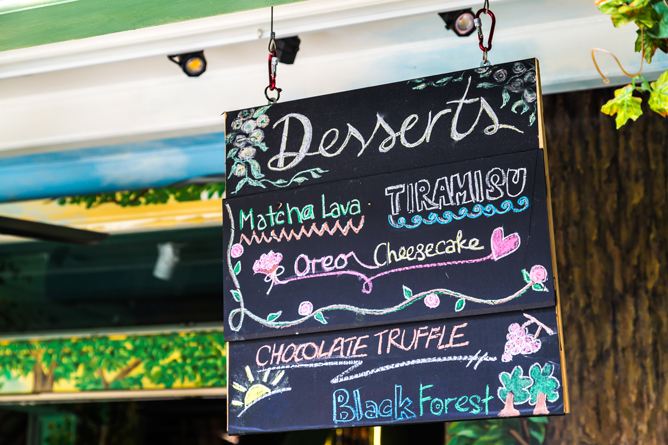 Desserts
Matcha Lava
TIRAMISU
Oreo Cheesecake
CHOCOLATE TRUFFLE
Black Forest